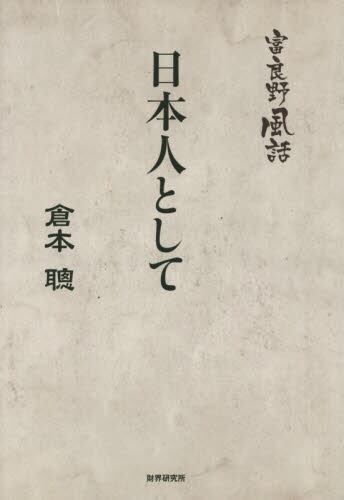 富良野風話
日本人として
倉本 聰
財界研究所